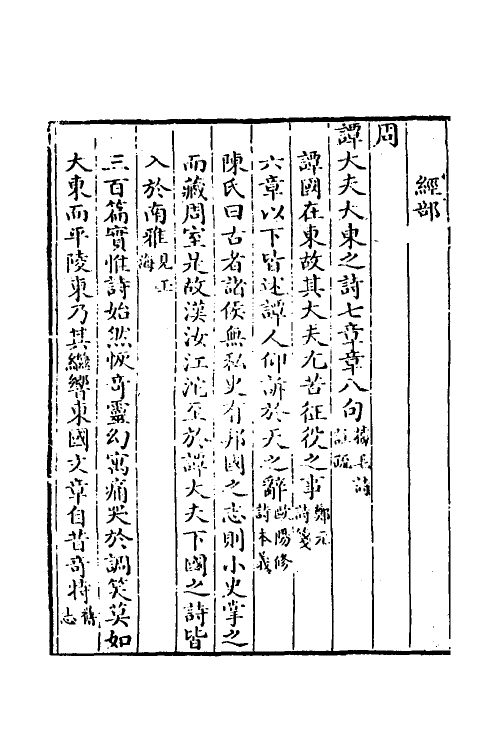 經部
周
譚大夫大東之詩七章章八句據毛詩註疏
譚國在東故其大夫尤苦征役之事鄭元詩箋
六章以下皆述譚人仰訴於天之辭歐陽修詩本義
陳氏曰古者諸侯無私史有邦國之志則小史掌之
而藏周室是故漢汝江沱至於譚大夫下國之詩皆
入於南雅見玉海
三百篇實惟詩始然恢奇靈幻寓痛哭於調笑莫如
大東而平陵東乃其繼響東國文章自昔奇特舊志